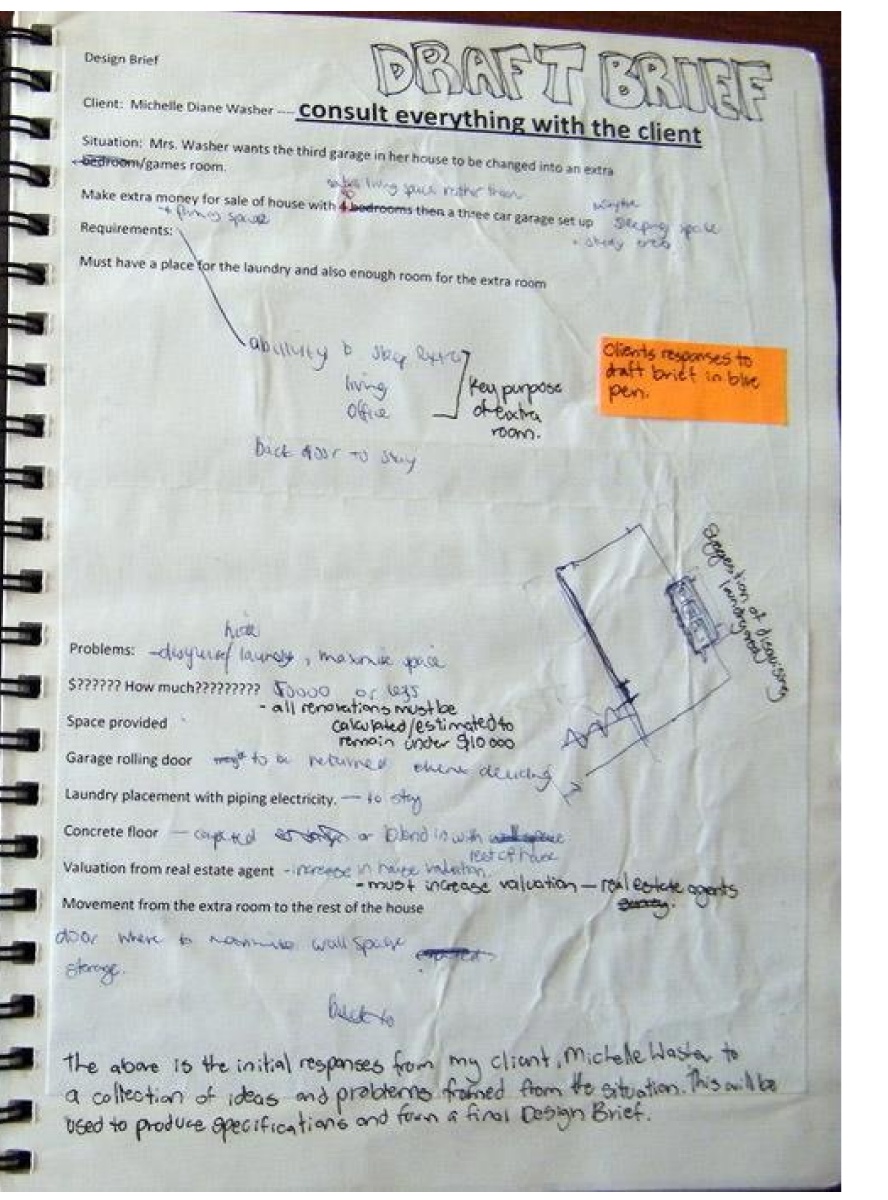 DRAFT BRIEF
Design Brief
Client: Michelle Diane Washer ---- consult everything with the client
Situation: Mrs. Washer wants the third garage in her house to be changed into an extra
bedroom/games room.
living space rather than
Make extra money for sale of house with 4 bedrooms then a three car garage set up
maybe
sleeping space
+ study area
+ living space
Requirements:
Must have a place for the laundry and also enough room for the extra room
abillity to sleep extra
living
Office
Key purpose
of extra
room.
Clients responses to
draft brief in blue
pen.
back door to stay
Suggestion of disguising
laundry area
hide
Problems: -disguise/ laundry, maximise space
$?????? How much????????? or less
- all renovations must be
calculated/estimated to
remain under $10 000
Space provided
Garage rolling door to be returned
Laundry placement with piping electricity. — to stay
Concrete floor — carpeted or blend in with
rest of house
Valuation from real estate agent - increase in house valuation.
- must increase valuation — real estate agents
Movement from the extra room to the rest of the house
door where to maximise wall space
storage.
back to
The above is the initial responses from my client, Michelle Washer to
a collection of ideas and problems formed from the situation. This will be
used to produce specifications and form a final Design Brief.